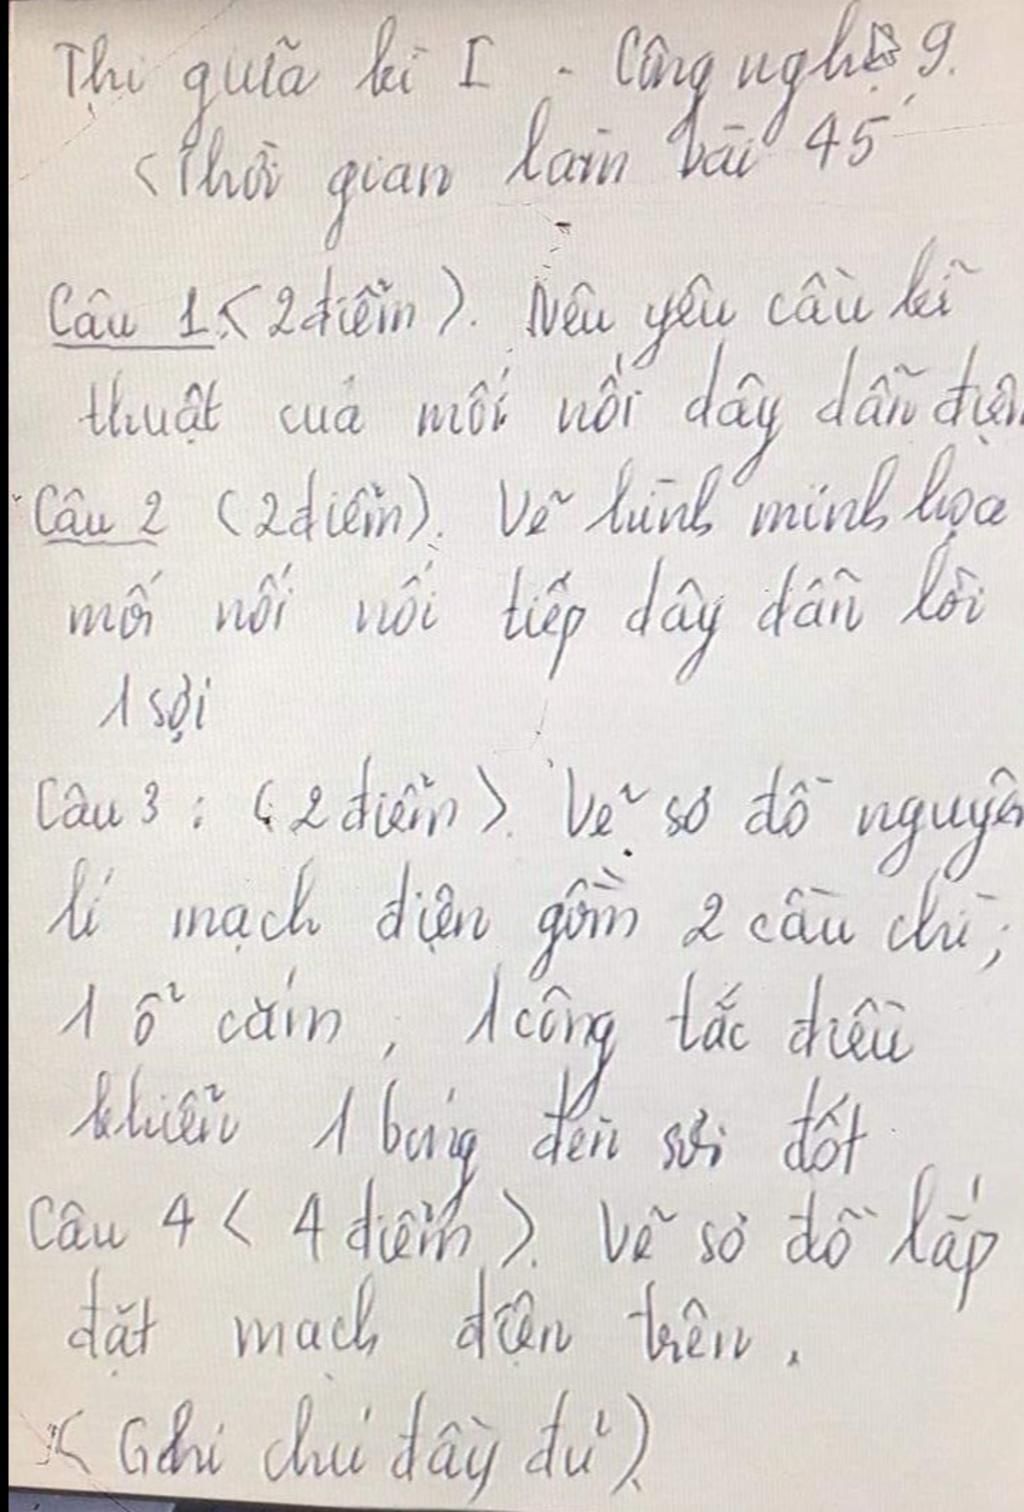 Thi giữa kì I - Công nghệ 9.
(Thời gian làm bài 45'
Câu 1 (2 điểm). Nêu yêu cầu kĩ
thuật của mối nối dây dẫn điện
Câu 2 (2 điểm). Vẽ hình minh họa
mối nối nối tiếp dây dẫn lõi
1 sợi
Câu 3 : (2 điểm). Vẽ sơ đồ nguyên
lí mạch điện gồm 2 cầu chì;
1 ổ cắm, 1 công tắc điều
khiển 1 bóng đèn sợi đốt
Câu 4 (4 điểm). Vẽ sơ đồ lắp
đặt mạch điện trên.
(Ghi chú đầy đủ)